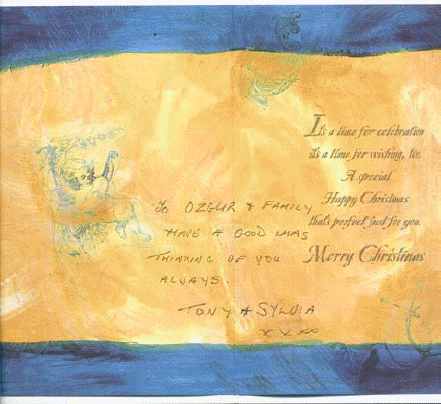 It's a time for celebration
it's a time for wishing, too.
A special
Happy Christmas
that's perfect just for you.
Merry Christmas
To OZGUR & FAMILY
HAVE A GOOD XMAS
THINKING OF YOU
ALWAYS.
TONY & SYLVIA
x x x x